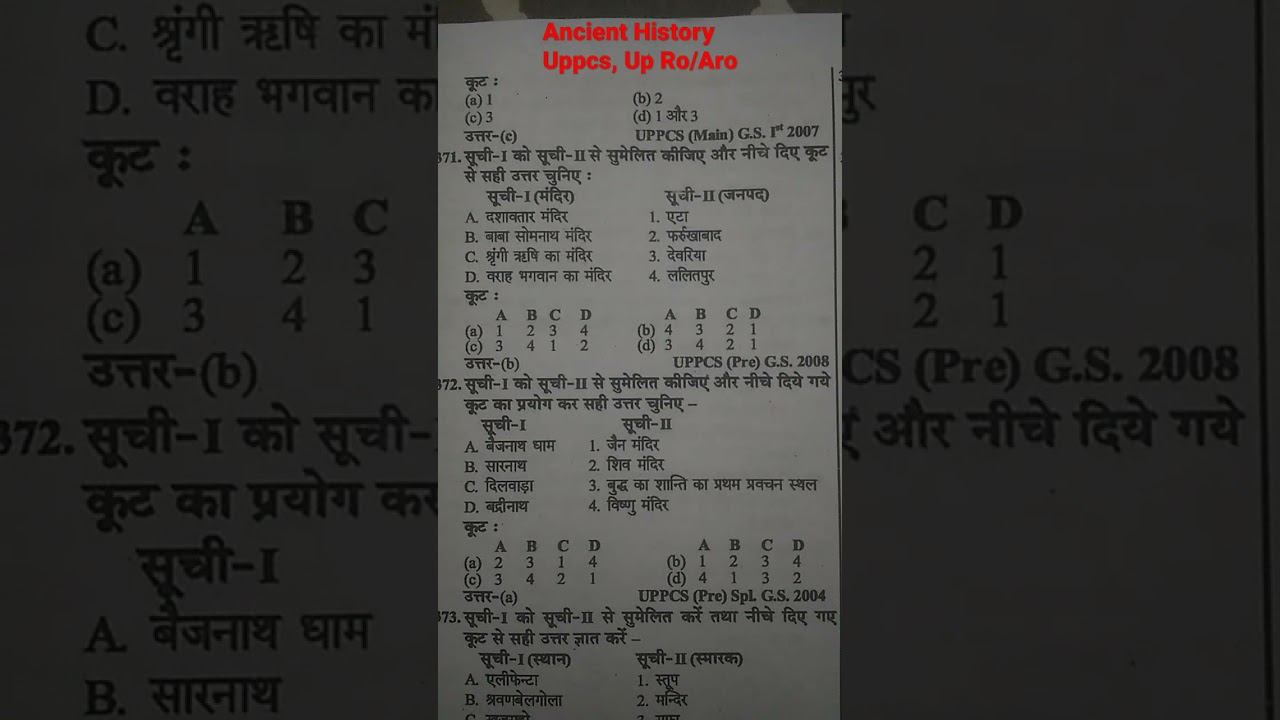 Ancient History
Uppcs, Up Ro/Aro
कूट :
(a) 1 (b) 2
(c) 3 (d) 1 और 3
उत्तर-(c) UPPCS (Main) G.S. Iˢᵗ 2007
371. सूची-I को सूची-II से सुमेलित कीजिए और नीचे दिए कूट
से सही उत्तर चुनिए :
सूची-I (मंदिर) सूची-II (जनपद)
A. दशावतार मंदिर 1. एटा
B. बाबा सोमनाथ मंदिर 2. फर्रुखाबाद
C. श्रृंगी ऋषि का मंदिर 3. देवरिया
D. वराह भगवान का मंदिर 4. ललितपुर
कूट :
A B C D A B C D
(a) 1 2 3 4 (b) 4 3 2 1
(c) 3 4 1 2 (d) 3 4 2 1
उत्तर-(b) UPPCS (Pre) G.S. 2008
372. सूची-I को सूची-II से सुमेलित कीजिएं और नीचे दिये गये
कूट का प्रयोग कर सही उत्तर चुनिए –
सूची-I सूची-II
A. बैजनाथ धाम 1. जैन मंदिर
B. सारनाथ 2. शिव मंदिर
C. दिलवाड़ा 3. बुद्ध का शान्ति का प्रथम प्रवचन स्थल
D. बद्रीनाथ 4. विष्णु मंदिर
कूट :
A B C D A B C D
(a) 2 3 1 4 (b) 1 2 3 4
(c) 3 4 2 1 (d) 4 1 3 2
उत्तर-(a) UPPCS (Pre) Spl. G.S. 2004
373. सूची-I को सूची-II से सुमेलित करें तथा नीचे दिए गए
कूट से सही उत्तर ज्ञात करें –
सूची-I (स्थान) सूची-II (स्मारक)
A. एलीफेन्टा 1. स्तूप
B. श्रवणबेलगोला 2. मन्दिर